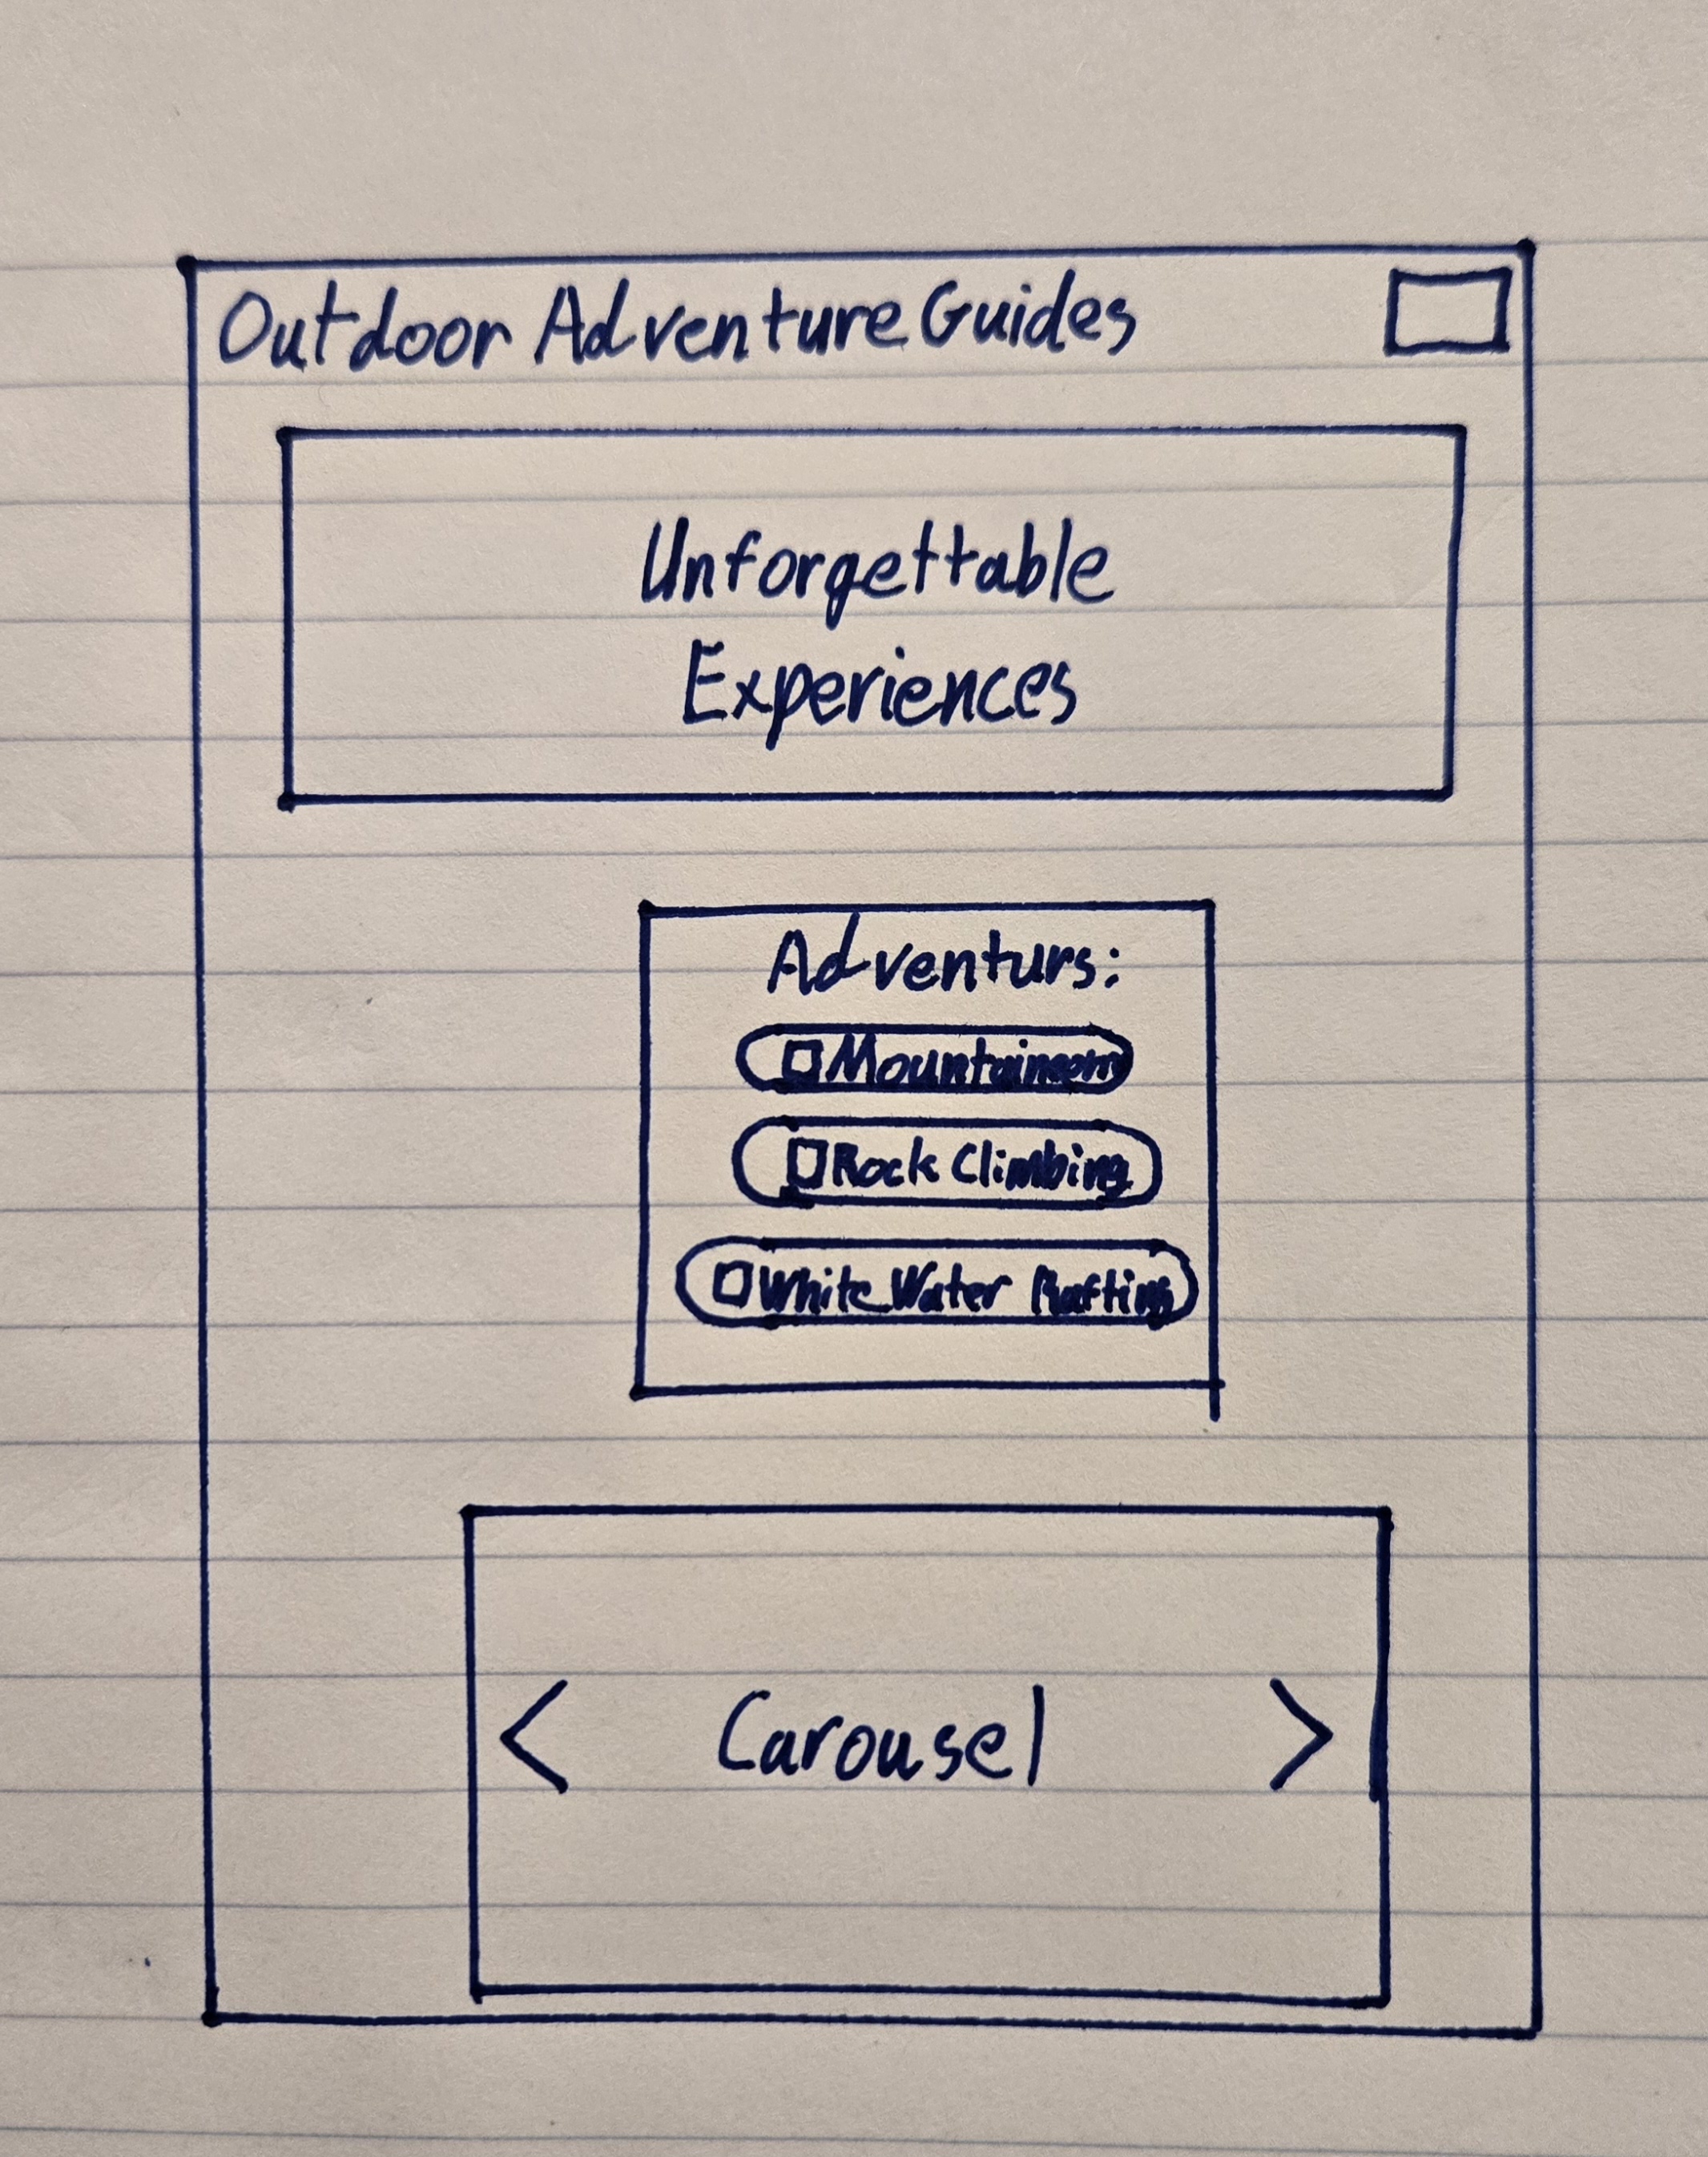 Outdoor Adventure Guides
Unforgettable
Experiences
Adventurs:
Rock Climbing
White Water Rafting
< Carousel >